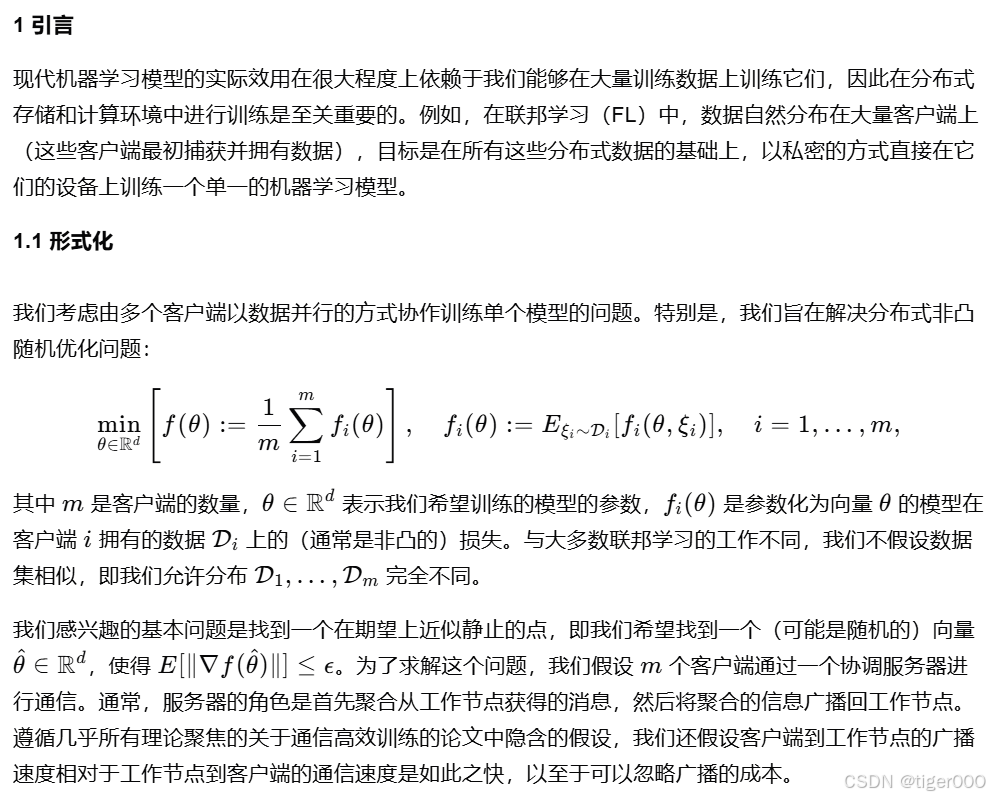 1 引言
现代机器学习模型的实际效用在很大程度上依赖于我们能够在大量训练数据上训练它们，因此在分布式
存储和计算环境中进行训练是至关重要的。例如，在联邦学习（FL）中，数据自然分布在大量客户端上
（这些客户端最初捕获并拥有数据），目标是在所有这些分布式数据的基础上，以私密的方式直接在它
们的设备上训练一个单一的机器学习模型。
1.1 形式化
我们考虑由多个客户端以数据并行的方式协作训练单个模型的问题。特别是，我们旨在解决分布式非凸
随机优化问题：
$\min_{\theta \in \mathbb{R}^d} \left[ f(\theta) := \frac{1}{m} \sum_{i=1}^{m} f_i(\theta) \right], \quad f_i(\theta) := E_{\xi_i \sim \mathcal{D}_i}[f_i(\theta, \xi_i)], \quad i = 1, \ldots, m,$
其中 $m$ 是客户端的数量，$\theta \in \mathbb{R}^d$ 表示我们希望训练的模型的参数，$f_i(\theta)$ 是参数化为向量 $\theta$ 的模型在
客户端 $i$ 拥有的数据 $\mathcal{D}_i$ 上的（通常是非凸的）损失。与大多数联邦学习的工作不同，我们不假设数据
集相似，即我们允许分布 $\mathcal{D}_1, \ldots, \mathcal{D}_m$ 完全不同。
我们感兴趣的基本问题是找到一个在期望上近似静止的点，即我们希望找到一个（可能是随机的）向量
$\hat{\theta} \in \mathbb{R}^d$，使得 $E[\|\nabla f(\hat{\theta})\|] \leq \epsilon$。为了求解这个问题，我们假设 $m$ 个客户端通过一个协调服务器进
行通信。通常，服务器的角色是首先聚合从工作节点获得的消息，然后将聚合的信息广播回工作节点。
遵循几乎所有理论聚焦的关于通信高效训练的论文中隐含的假设，我们还假设客户端到工作节点的广播
速度相对于工作节点到客户端的通信速度是如此之快，以至于可以忽略广播的成本。
CSDN @tiger000